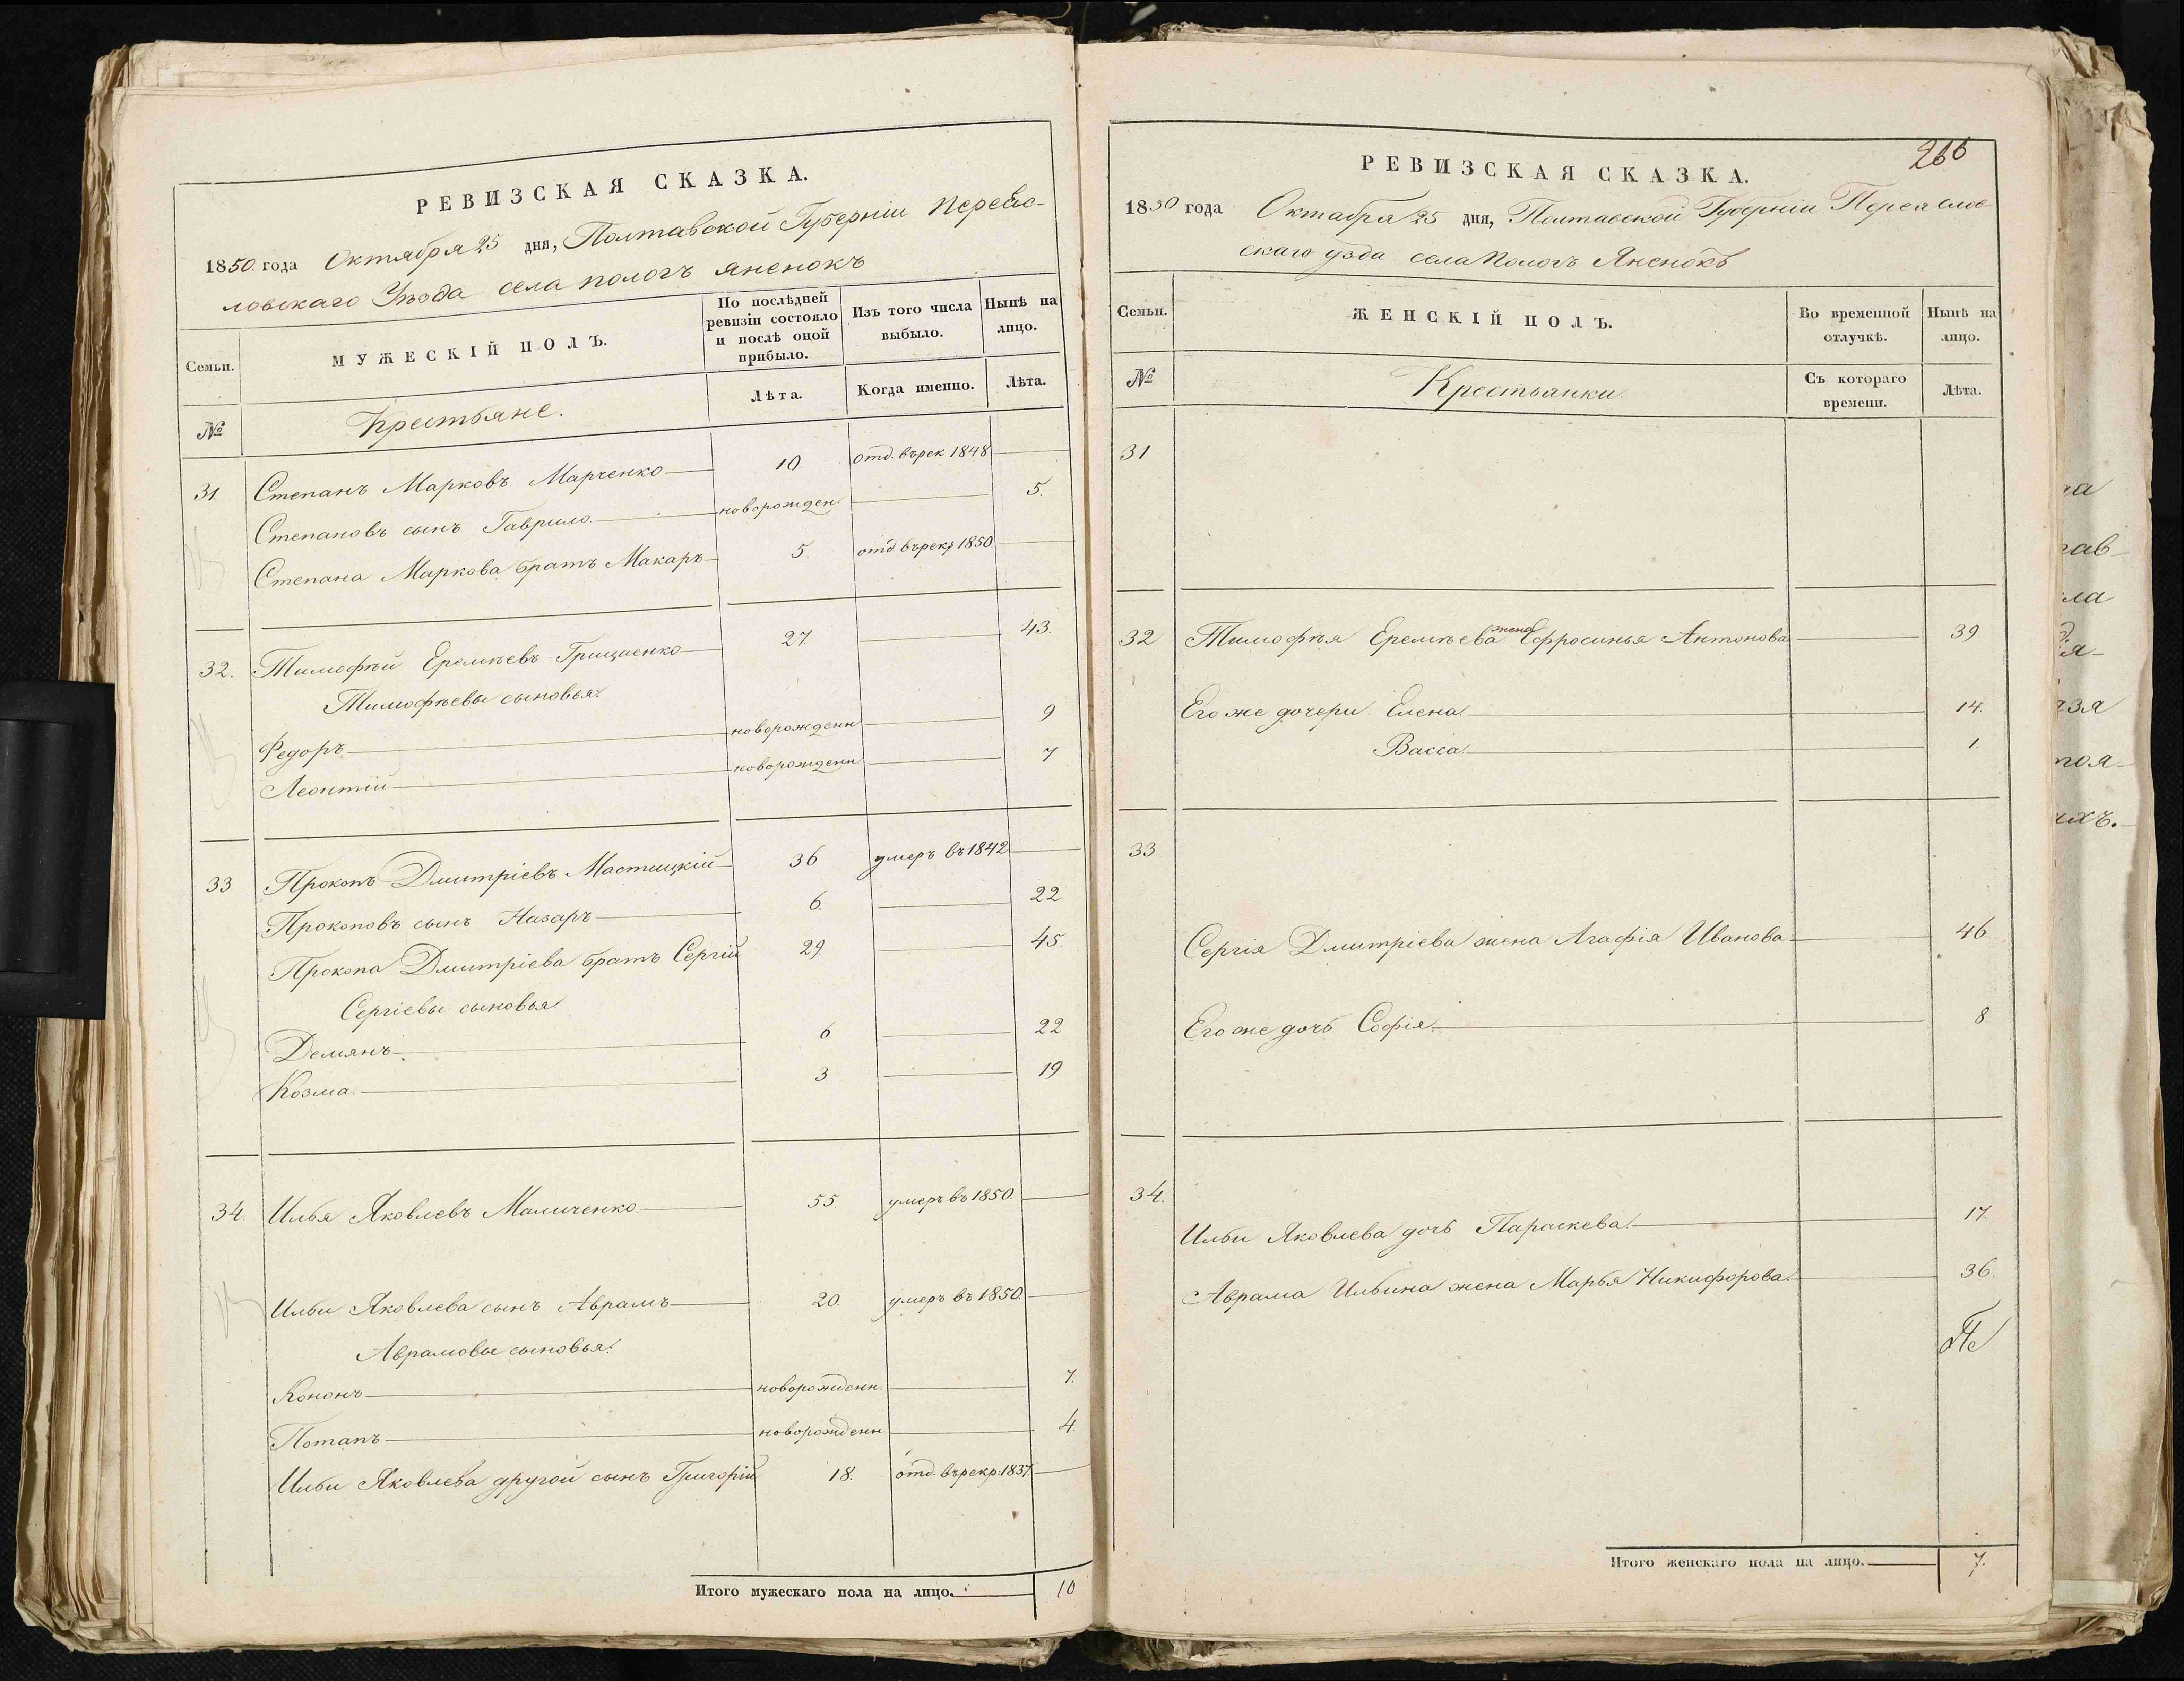 РЕВИЗСКАЯ СКАЗКА.
1850. года Октября 25 дня, Полтавской Губерніи Переяс-
ловскаго Уѣзда села пологъ яненокъ
Семьи.
МУЖЕСКІЙ ПОЛЪ.
По послѣдней ревизіи состояло и послѣ оной прибыло.
Изъ того числа выбыло.
Нынѣ на лицо.
№
Крестьяне.
Лѣта.
Когда именно.
Лѣта.
31 Степанъ Марковъ Марченко 10 отд. въ рек 1848
Степановъ сынъ Гаврило новорожден. 5.
Степана Маркова братъ Макаръ 5. отд. въ рекр 1850
32. Тимофѣй Еремѣевъ Грищенко 27 43.
Тимофѣевы сыновья:
Федоръ новорожденн 9
Леонтій новорожденн 7
33 Прокопъ Дмитріевъ Мастицкій 36 умеръ въ 1842
Прокоповъ сынъ Назаръ 6. 22
Прокопа Дмитріева братъ Сергій 29. 45.
Сергіевы сыновья:
Демянъ 6 22
Козма 3 19
34. Илья Яковлевъ Маличенко 55. умеръ въ 1850.
Ильи Яковлева сынъ Аврамъ 20. умеръ въ 1850.
Аврамовы сыновья:
Кононъ новорожденн. 7.
Потапъ новорожденн 4.
Ильи Яковлева другой сынъ Григорій 18. отд. въ рекр: 1837.
Итого мужескаго пола на лицо. 10
266
РЕВИЗСКАЯ СКАЗКА.
1850 года Октября 25 дня, Полтавской Губерніи Переяслов
скаго уѣзда села Пологъ Яненокъ
Семьи.
ЖЕНСКІЙ ПОЛЪ.
Во временной отлучкѣ.
Нынѣ на лицо.
№
Крестьянки.
Съ котораго времени.
Лѣта.
31
32 Тимофѣя Еремѣева жена Ефросинья Антонова 39
Его же дочери Елена 14.
Васса 1.
33
Сергія Дмитріева жена Агафія Иванова 46
Его же дочь Софія 8
34.
Ильи Яковлева дочь Параскева 17.
Аврама Ильина жена Марья Никифорова 36.
Итого женскаго пола на лицо. 7.